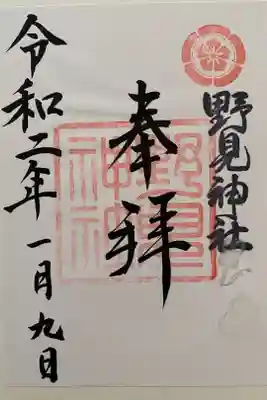 野見神社
奉拝
令和二年一月九日
野見神社